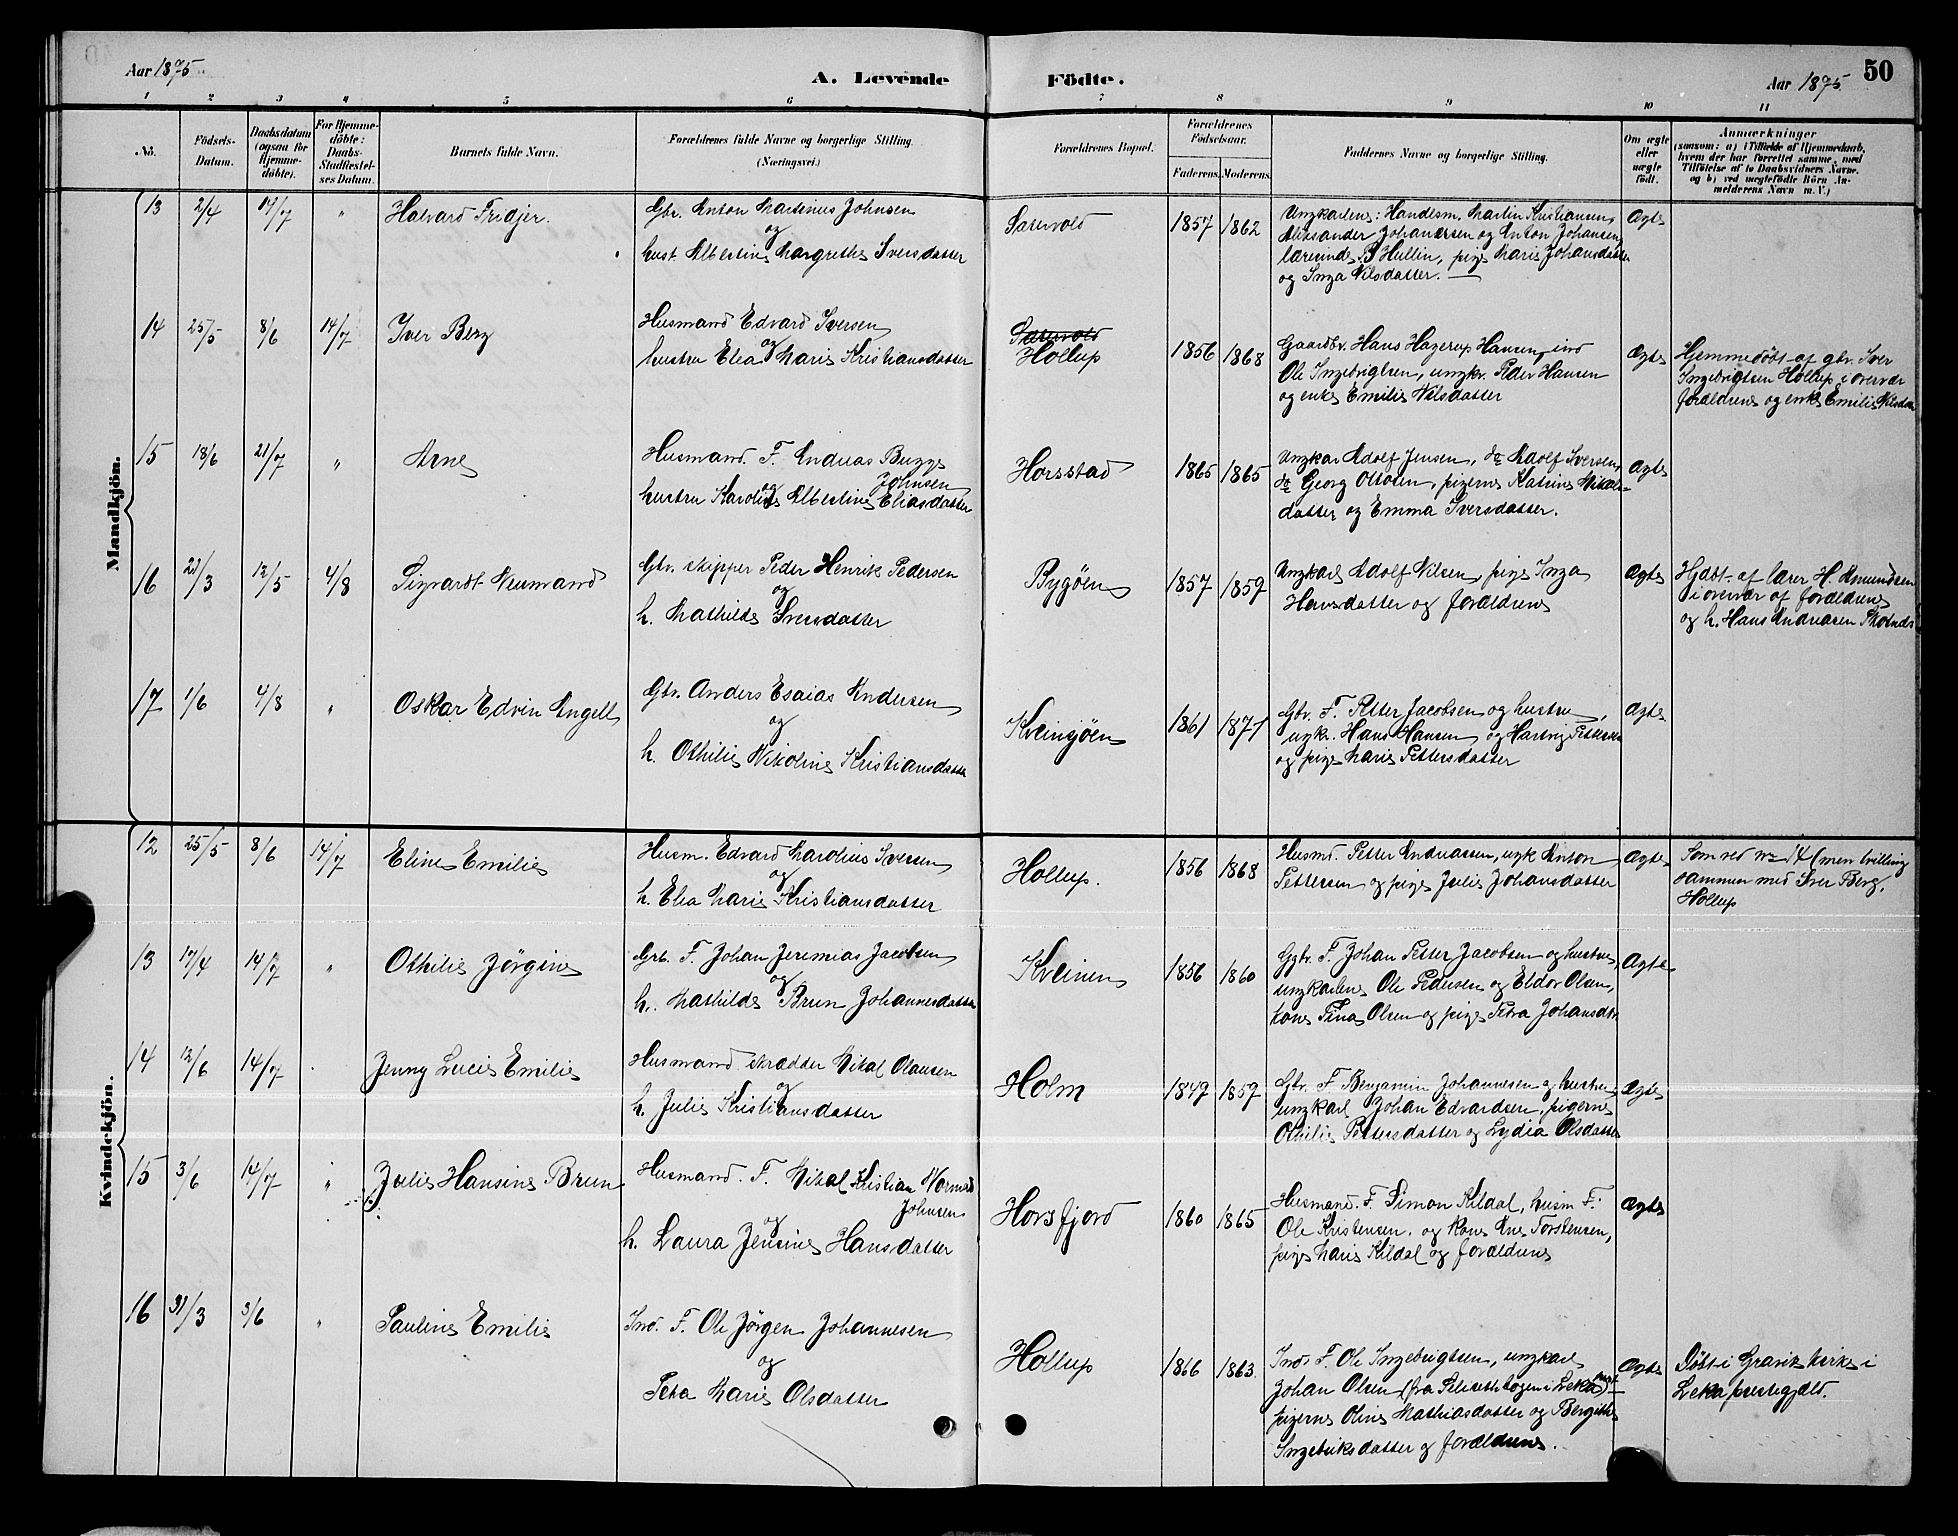 Aar 1895.
A. Levende
Födte.
Aar 1895.
50
1 2 3 4 5 6 7 8 9 10 11
No.
Födsels-
Datum.
Daabsdatum
(ogsaa for
Hjemme-
döbte).
For Hjemme-
döbte:
Daabs-
Stadfæstel-
ses Datum.
Barnets fulde Navn.
Forældrenes fulde Navne og borgerlige Stilling.
(Næringsvei.)
Forældrenes Bopæl.
Forældrenes
Födselsaar.
Faderens. Moderens.
Faddernes Navne og borgerlige Stilling.
Om ægte
eller
uægte
födt.
Anmærkninger
(saasom: a) i Tilfælde af Hjemmedaab,
hvem der har forrettet samme, med
Tilföielse af to Daabsvidners Navne.
og b) ved uægtefödte Börn An-
melderens Navn m. V.)
Mandkjön.
13 2/4 14/7 " Halvard Fridjer.
Gbr. Anton Martinus Johnsen
og
hust. Albertine Margrethe Iversdatter
Satervold
1857 1862
Ungkarlene: Handesm. Martin Kristiansen,
Aleksander Johanssen og Anton Johansen,
lærerinde B Hullin, pige Marie Johansdatter
og Inga Nilsdatter.
Ægte
14 25/5 8/6 14/7 Iver Berg
Husmand Edvard Iversen
og
hustru Elea Marie Kristiansdatter
Satervold
Hollup
1856 1868
Gaardbr. Hans Hagerup Hansen, ind
Ole Ingebrigtsen, ungkr. Peder Hansen
og enke Emilie Nilsdatter
Ægte
Hjemmedöbt af gbr. Iver
Ingebrigtsen Hollup i overvær
forældrene og enke Emilie Nilsdat
15 18/6 21/7 " Arne
Husmand. F. Andreas Bugge
Johnsen
og
hustru Karolie Albertine Eliasdatter
Horsstad
1865 1865
Ungkar Adolf Jensen, do Adolf Iversen,
do Georg Ottosen, pigerne Katrine Nikol-
datter og Emma Iversdatter.
Ægte
16 21/3 12/5 4/8 Sigvardt Neumand
Gbr. skipper Peder Henrik Pedersen
og
h. Mathilde Iversdatter
Bygöen
1857 1859
Ungkarl Adolf Nilsen, pige Inga
Hansdatter og forældrene
Ægte
Hjdbt. af lærer H. Amundsen
i overvær af forældrene
og h. Hans Andreasen
17 1/6 4/8 " Oskar Edvin Engell
Gbr. Anders Esaias Andersen
og
h. Othilie Nikoline Kristiansdatter
Kveingöen
1861 1871
Gbr. F. Petter Jacobsen og hustru,
ugkr. Hans Hansen og Hartvig Pettersen
og pige Marie Pettersdatter
Ægte
Kvindekjön.
12 25/5 8/6 14/7 Eline Emilie
Husm. Edvard Karolius Iversen
og
h. Elea Marie Kristiansdatter
Hollup.
1856 1868
Husmd. Petter Andreassen, ugk Anton
Pettersen og pige Julie Johansdatter
Ægte
Som ved no 14 (men tvilling
sammen med Iver Berg.
Hollup
13 17/4 14/7 " Othilie Jörgine
Grb. F. Johan Jeremias Jacobsen
og
h. Mathilde Brun Johannesdatter
Kveinen
1856 1860
Ggbr. F. Johan Petter Jacobsen og hustru,
ungkarlene Ole Pedersen og Eldor Olsen,
kone Tina Olsen og pige Petra Johansdtr
Ægte
14 12/6 14/7 Jenny Lucie Emilie
Husmand skrædder Nikal Olausen
og
h. Julie Kristiansdatter
Holm
1849 1859
Gbr. F Benjamin Johannesen og hustru,
ungkarl Johan Edvardsen, pigerne
Othilie Pettersdatter og Lydia Olsdatter
Ægte
15 3/6 14/7 " Julie Hansine Brun
Husmand. F. Nikal Kristian Norman
Johnsen
og
h. Laura Jensine Hansdatter
Horsfjord
1860 1865
Husmand. F. Simon Kildal, husm F.
Ole Kristensen. og kone Ane Torstensen,
pige Marie Kildal og forældrene
Ægte
16 31/3 3/6 " Pauline Emilie
Ind. F. Ole Jörgen Johannesen
og
Petra Marie Olsdatter
Hollup
1866 1863
Inds F. Ole Ingebrigtsen, ungkarl
Johan Olsen (fra i Leka)
pigerne Oline Mathiasdatter og Bergithe
Ingebriksdatter og forældrene.
Ægte
Döbt i Gravik kirke i
Leka prestegjæld.